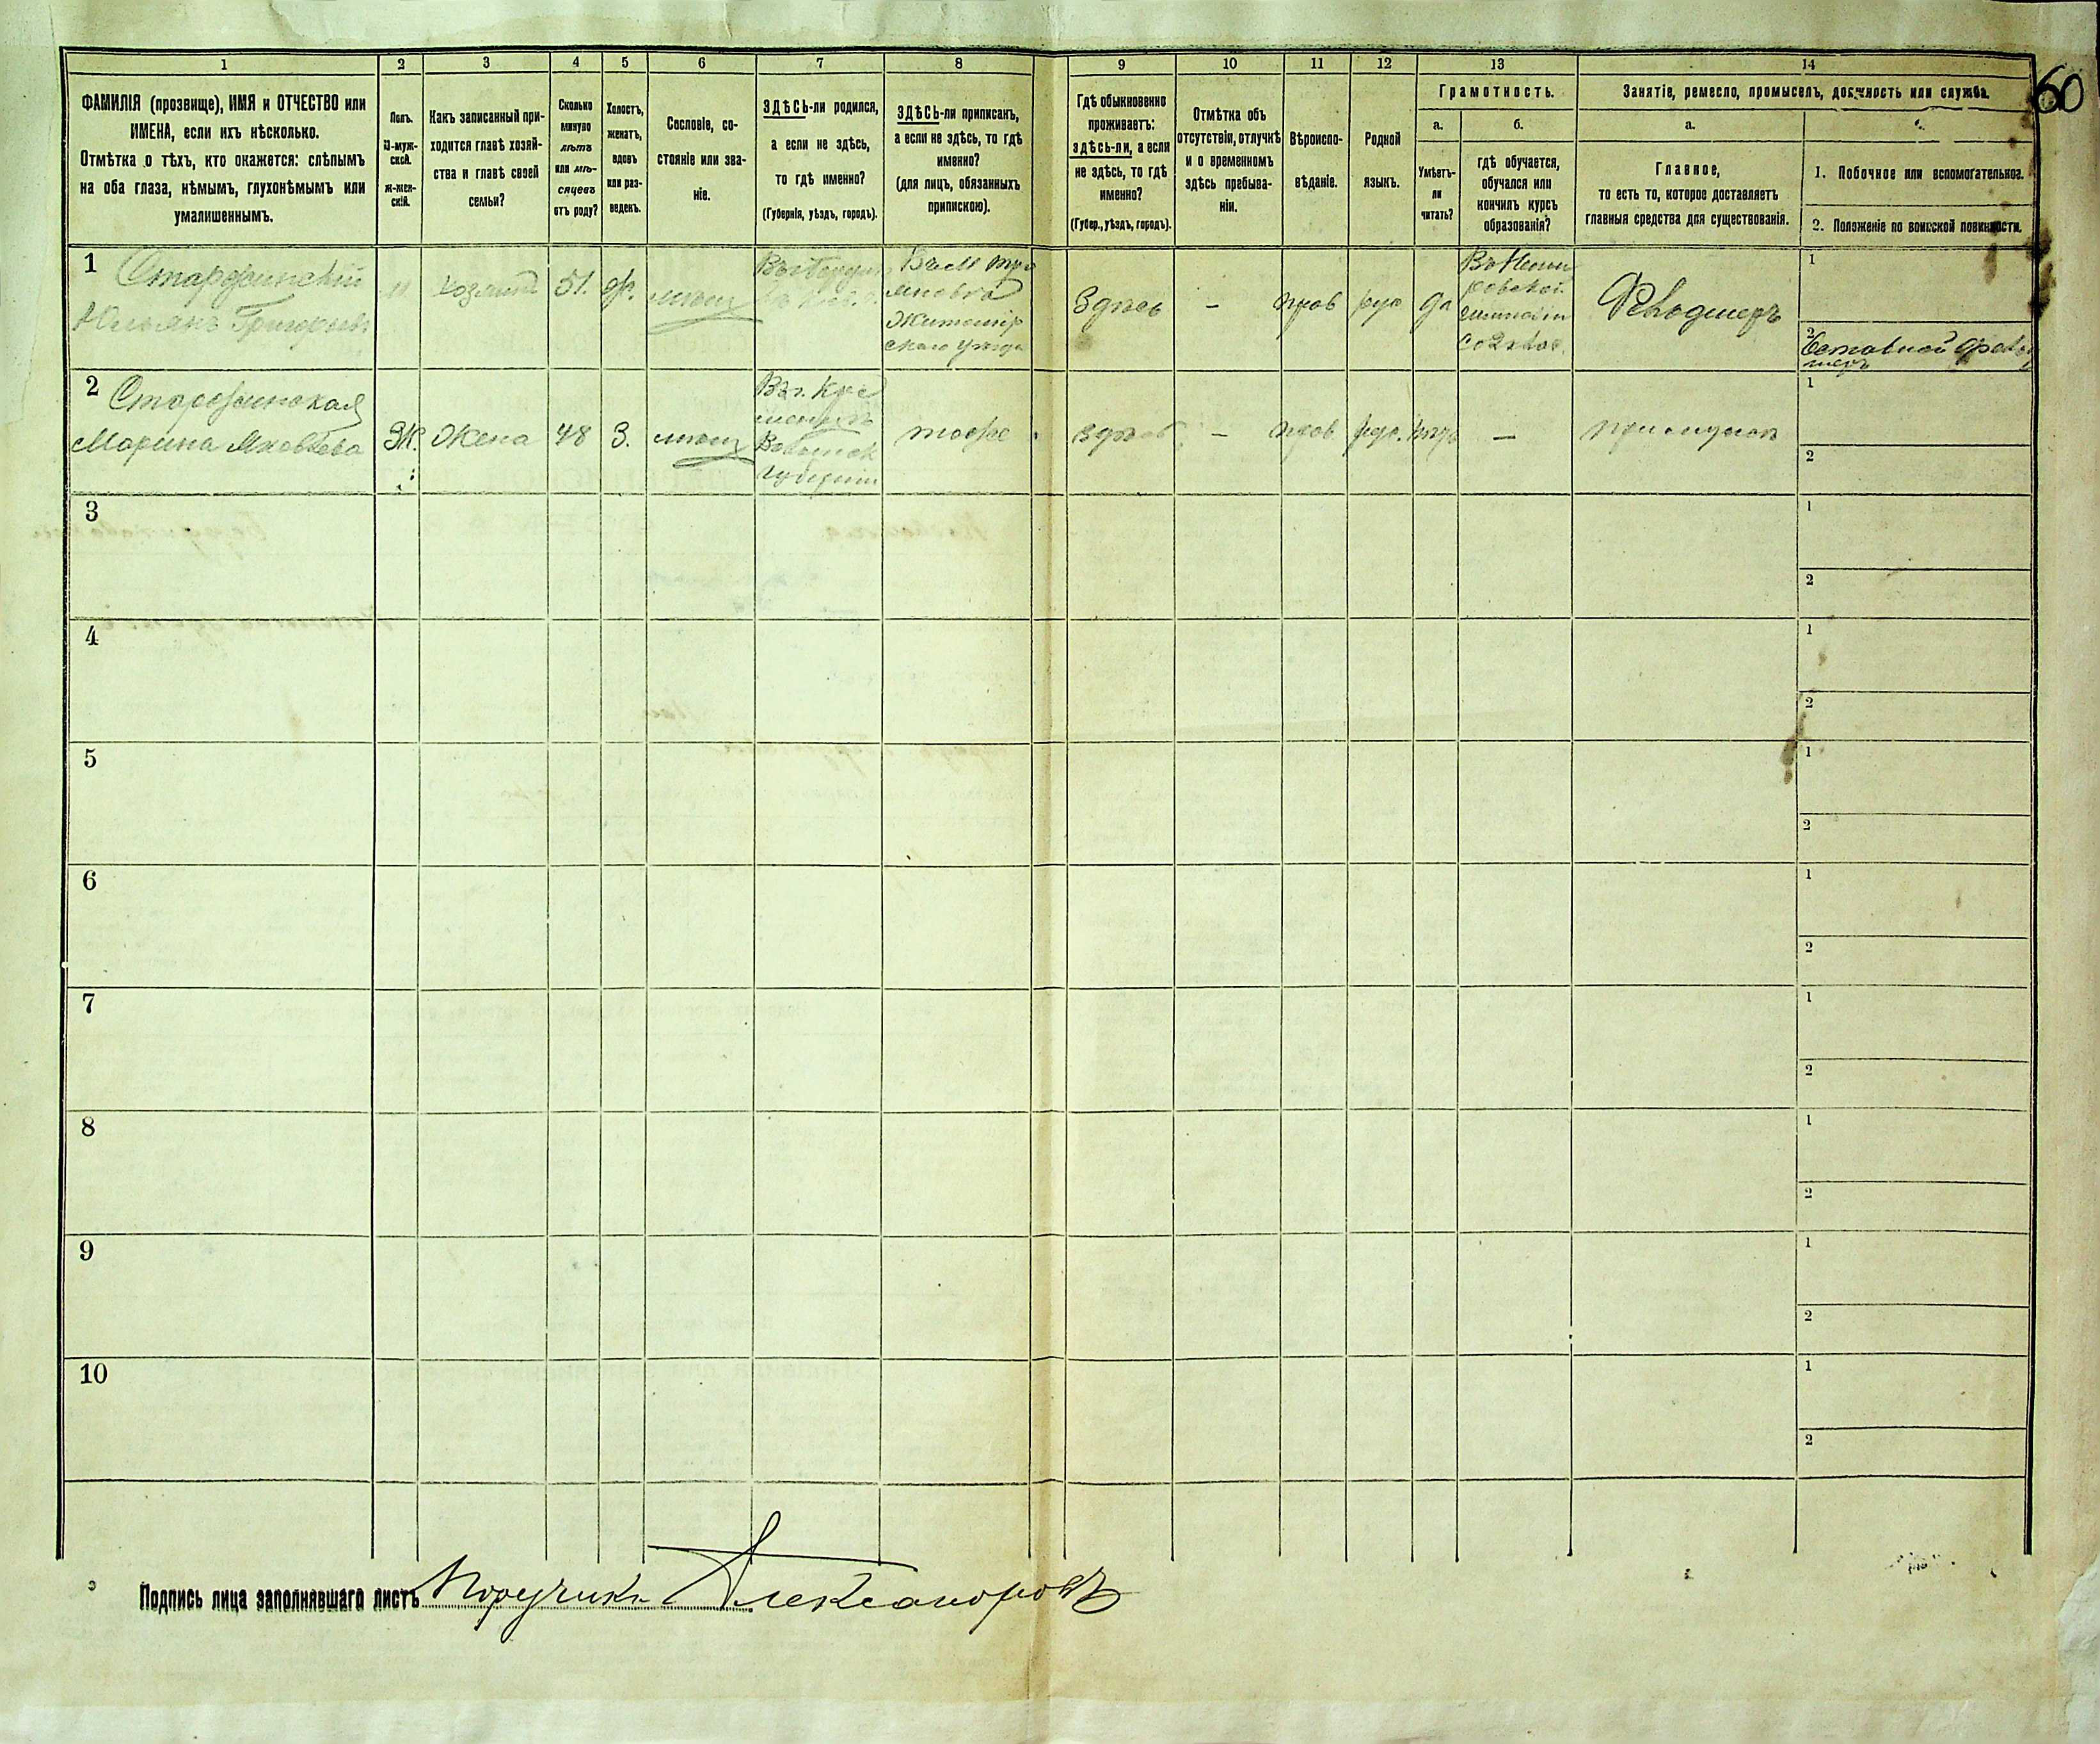 60
1 2 3 4 5 6 7 8 9 10 11 12 13 14
ФАМИЛІЯ (прозвище), ИМЯ и ОТЧЕСТВО или
ИМЕНА, если ихъ нѣсколько.
Отмѣтка о тѣхъ, кто окажется: слѣпымъ
на оба глаза, нѣмымъ, глухонѣмымъ или
умалишеннымъ.
Полъ.
М-муж-
ской.
Ж-жен-
скій.
Какъ записанный при-
ходится главѣ хозяй-
ства и главѣ своей
семьи?
Сколько
минуло
лѣтъ
или мѣ-
сяцевъ
отъ роду?
Холостъ,
женатъ,
вдовъ
или раз-
веденъ.
Сословіе, со-
стояніе или зва-
ніе.
ЗДѢСЬ-ли родился,
а если не здѣсь,
то гдѣ именно?
(Губернія, уѣздъ, городъ).
ЗДѢСЬ-ли приписанъ,
а если не здѣсь, то гдѣ
именно?
(для лицъ, обязанныхъ
припискою).
Гдѣ обыкновенно
проживаетъ:
здѣсь-ли, а если
не здѣсь, то гдѣ
именно?
(Губер., уѣздъ, городъ).
Отмѣтка объ
отсутствіи, отлучкѣ
и о временномъ
здѣсь пребыва-
ніи.
Вѣроиспо-
вѣданіе.
Родной
языкъ.
Грамотность.
а.
Умѣетъ-
ли
читать?
б.
гдѣ обучается,
обучался или
кончилъ курсъ
образованія?
Занятіе, ремесло, промыселъ, должность или служба.
а.
Главное,
то есть то, которое доставляетъ
главныя средства для существованія.
1. Побочное или вспомогательное.
2. Положеніе по воинской повинности.
1
Юльянъ Григорьевъ
хозяинъ
51.
мѣщ
Житомір
скаго уѣзда
Здѣсь
—
прав
рус
да
гимназіи
Фельдшеръ
1
2
2
Марина Яковлева
Ж.
Жена
48
З.
мѣщ
Въ г. Кре
менцѣ
Волынск
губерніи
тоже
здѣсь
—
прав
рус.
—
при мужѣ
1
2
3
1
2
4
1
2
5
1
2
6
1
2
7
1
2
8
1
2
9
1
2
10
1
2
Подпись лица заполнявшаго листъ Поручикъ Александровъ